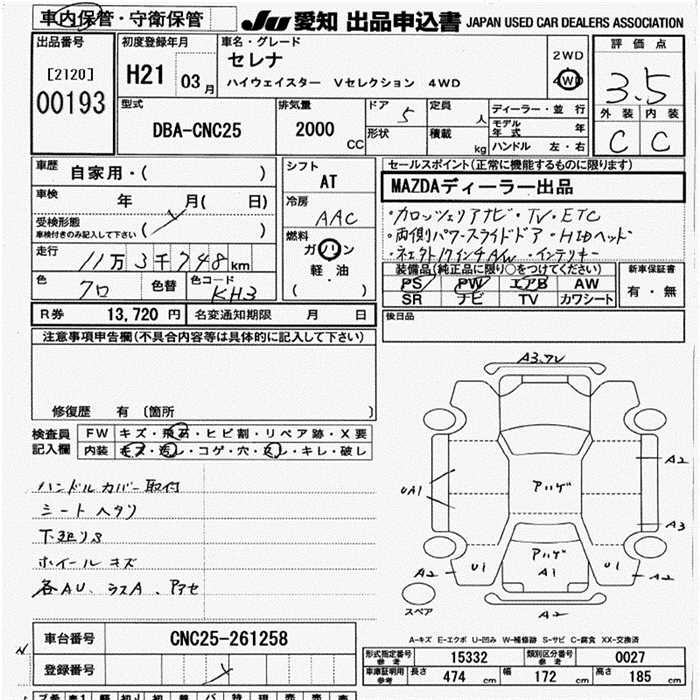 車内保管・守衛保管 JU 愛知 出品申込書 JAPAN USED CAR DEALERS ASSOCIATION
出品番号 初度登録年月 車名・グレード 評価点
[2120] H21 03月 セレナ 2WD
00193 ハイウェイスター Vセレクション 4WD 4WD 3.5
型式 排気量 ドア 5 定員 人 ディーラー・並行 外装 内装
DBA-CNC25 2000 CC 形状 積載 kg モデル年式 年 C C
ハンドル 左・右
車歴 自家用・( ) シフト AT セールスポイント(正常に機能するものに限ります)
車検 年 月( 日) 冷房 AAC MAZDAディーラー出品
受検形態 ( ) ・カロッツェリアナビ・TV・ETC
車検付きのみ記入して下さい 燃料 ガソリン ・両側パワースライドドア・HIDヘッド
走行 11万3千748km 軽・油 ・ネェクト17インチAW・インテリキー
( ) 装備品(純正品に限り○をつけてください) 新車保証書
色 クロ 色替 色コード KH3 PS PW エアB AW 有・無
SR ナビ TV カワシート
R券 13,720円 名変通知期限 月 日 後日品
注意事項申告欄(不具合内容等は具体的に記入して下さい)
修復歴 有 〔箇所 〕
検査員 FW キズ・飛石・ヒビ割・リペア跡・X要
記入欄 内装 キズ・汚レ・コゲ・穴・スレ・キレ・破レ
ハンドルカバー取付
シートヘタリ
下廻りS
ホイールキズ
各AU、ラスA、アセ
A3.
A2
UA1 アハゲ
A3
アハゲ
A2 U1 A1 U1 A2
スペア A2
A-キズ E-エクボ U-凹み W-補修跡 S-サビ C-腐食 XX-交換済
車台番号 CNC25-261258
登録番号
型式指定番号 参考 15332 類別区分番号 参考 0027
車庫証明用 参考 長さ 474 cm 幅 172 cm 高さ 185 cm